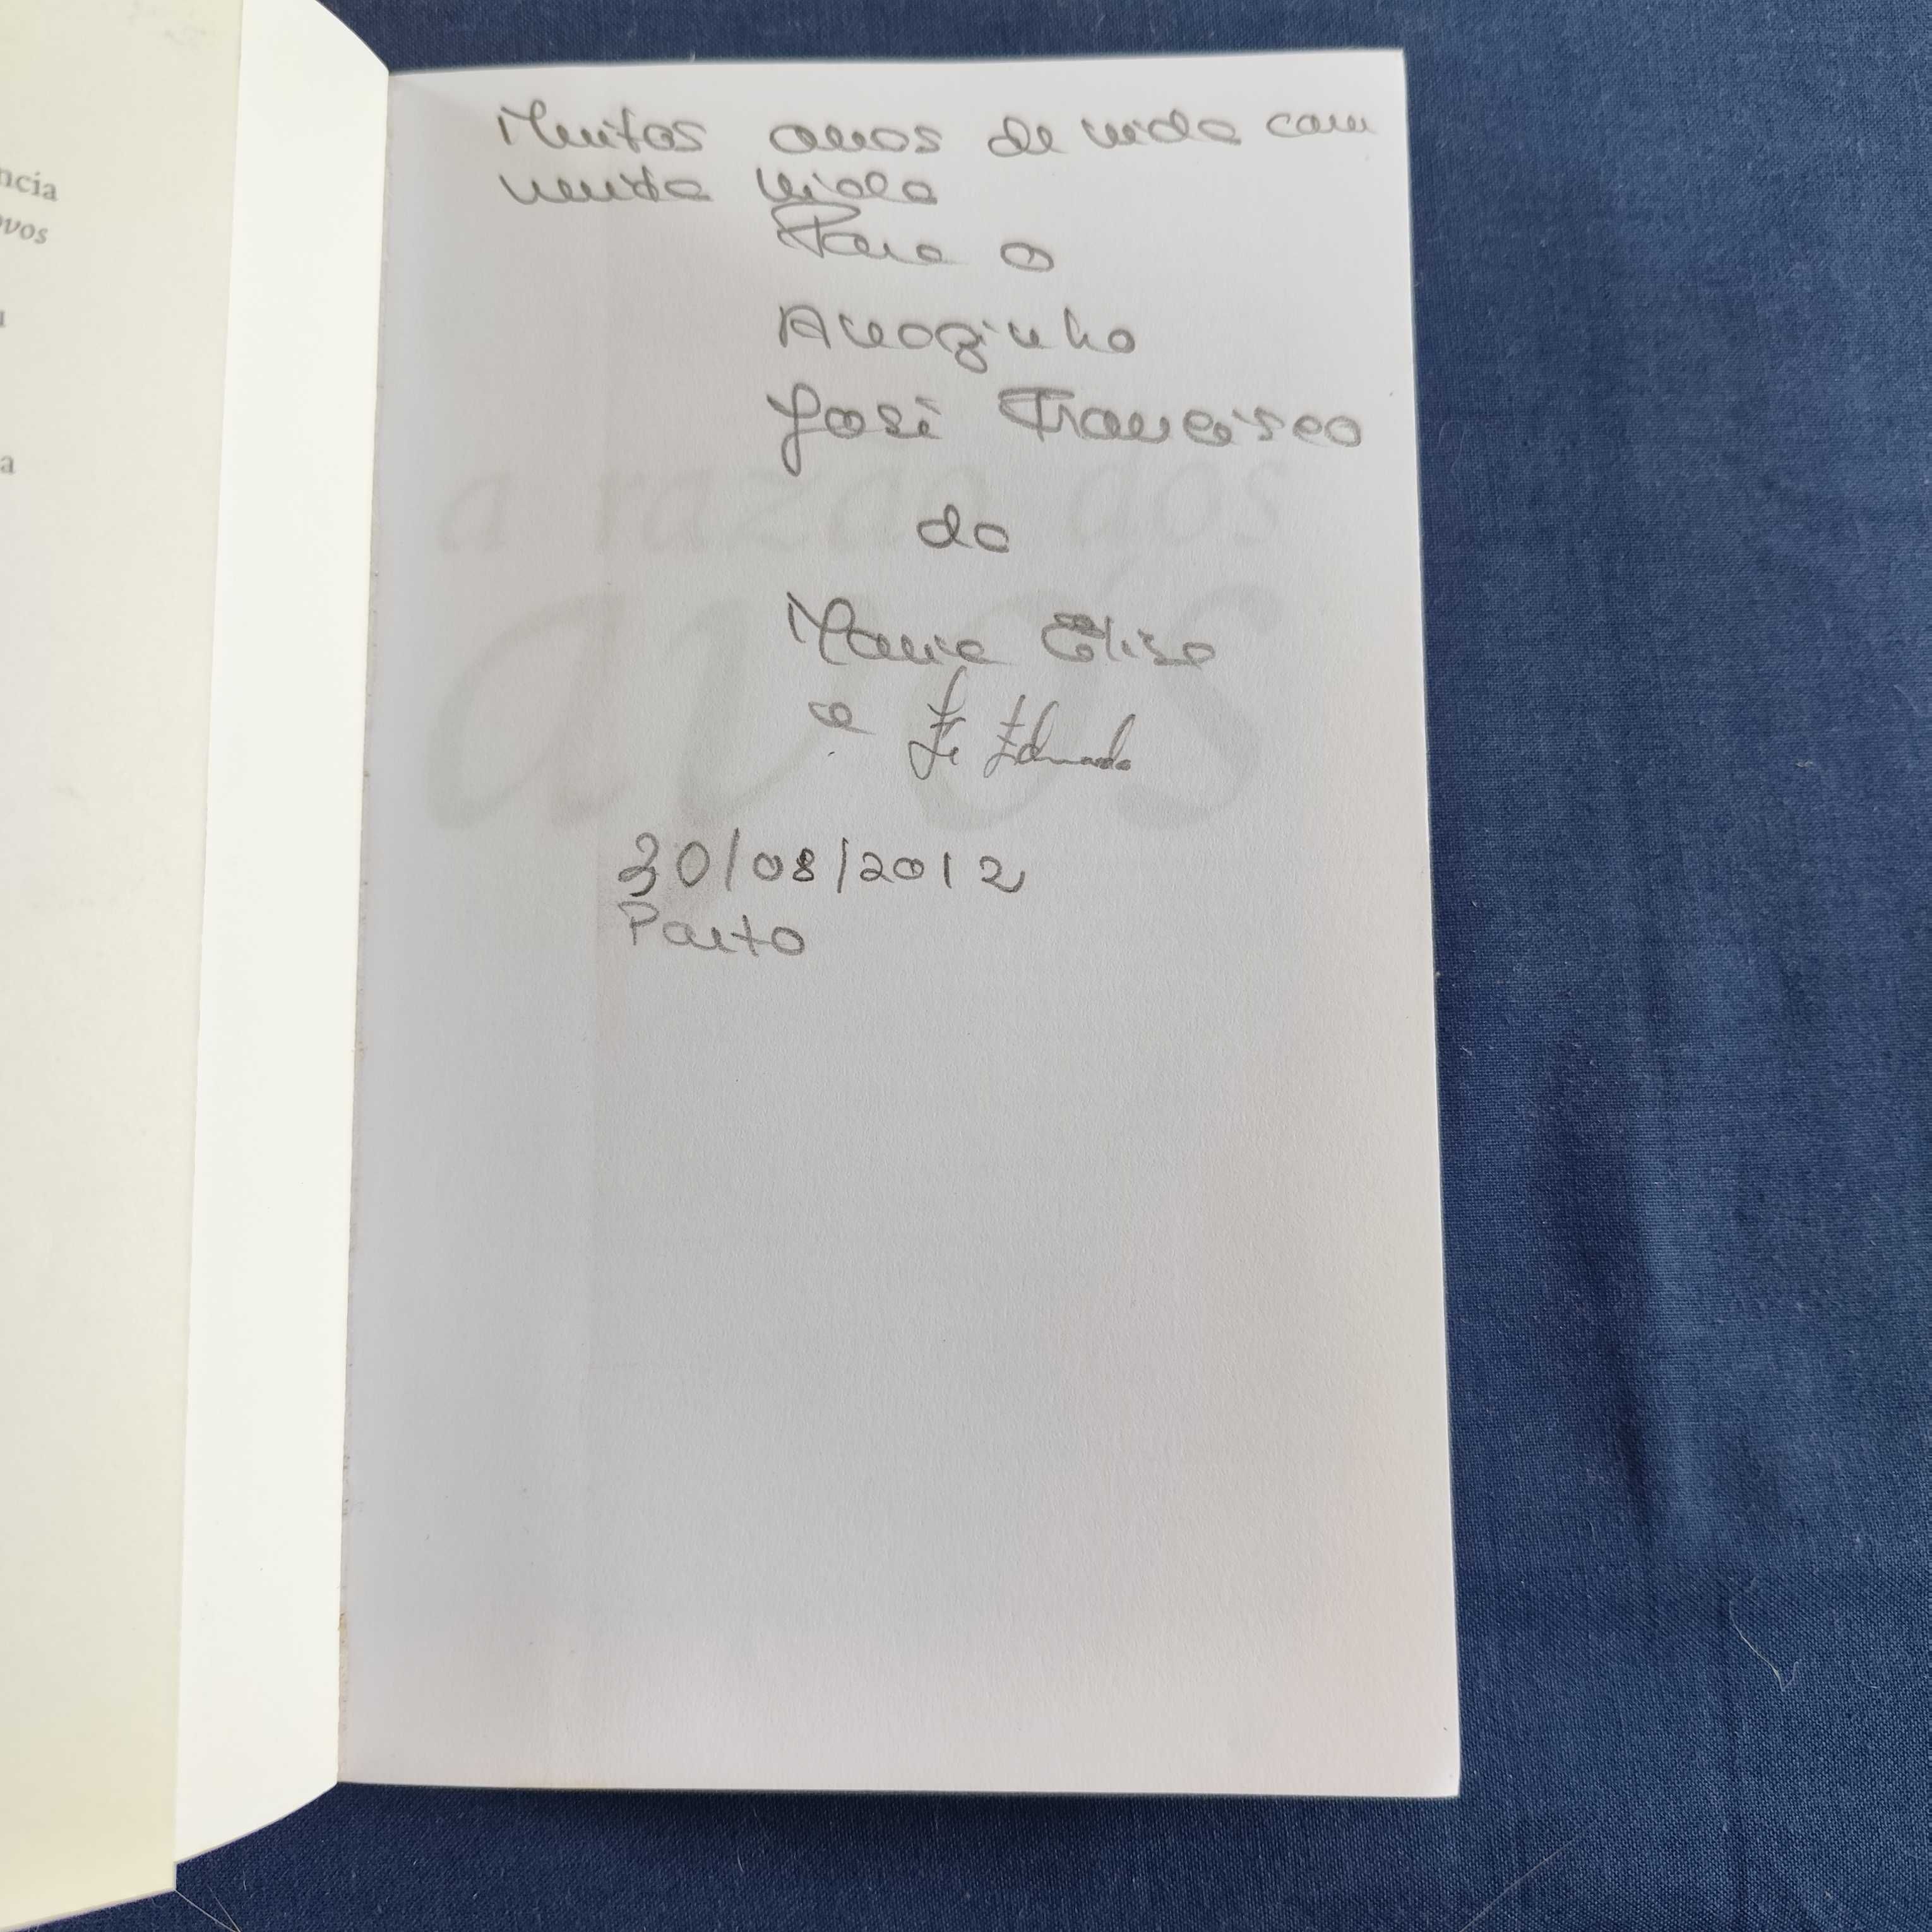 ncia
ovos
a
Muitos anos de vida com
muita vida
Para o
Avozinho
José Francisco
da
Maria Elisa
e Zé Eduardo
30/08/2012
Porto
a razão dos
avós